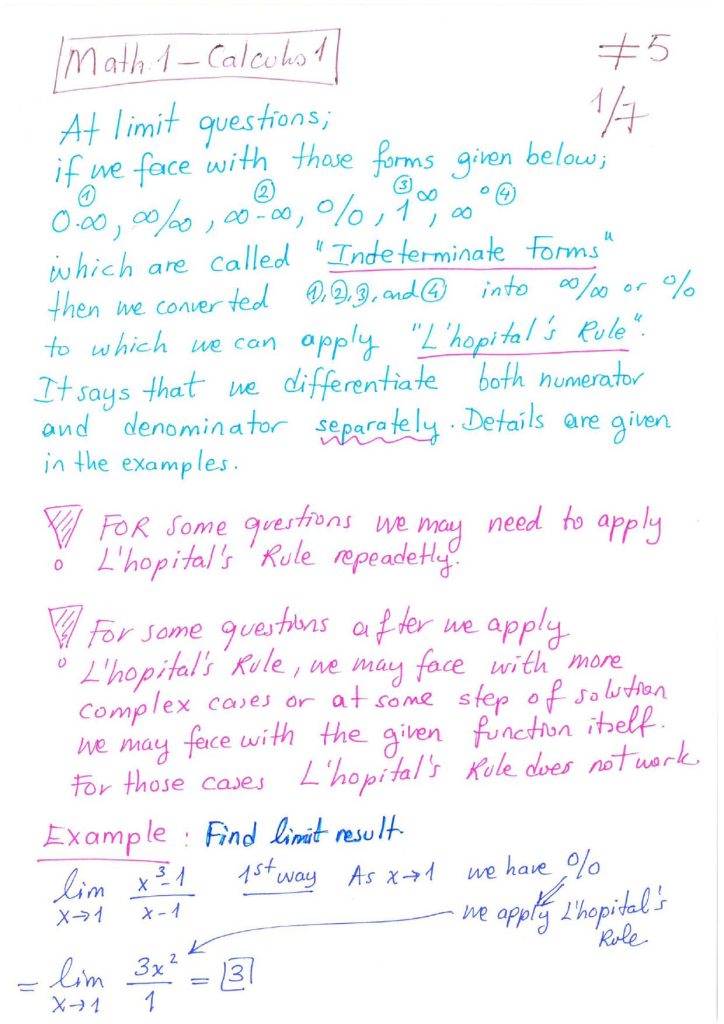 Math.1 – Calculus 1
#5
1/7
At limit questions;
if we face with those forms given below;
① ② ③ ④
0.∞, ∞/∞, ∞-∞, 0/0, 1^∞, ∞^0
which are called "Indeterminate Forms"
then we converted ①,②,③, and ④ into ∞/∞ or 0/0
to which we can apply "L'hopital's Rule".
It says that we differentiate both numerator
and denominator separately. Details are given
in the examples.
FOR some questions we may need to apply
L'hopital's Rule repeadetly.
For some questions after we apply
L'hopital's Rule, we may face with more
complex cases or at some step of solution
we may face with the given function itself.
For those cases L'hopital's Rule does not work.
Example : Find limit result.
lim x→1 (x^3-1)/(x-1) 1st way As x→1 we have 0/0
we apply L'hopital's
Rule
= lim x→1 3x^2/1 = 3